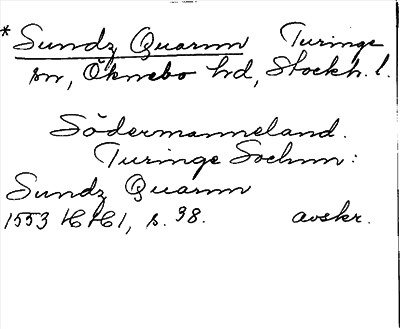 * Sundz Quarnn Turinge
sn, Öknebo hd, Stockh. l.
Södermanneland.
Turinge Sochnn:
Sundz Quarnn
1553 HH1, s. 98. avskr.